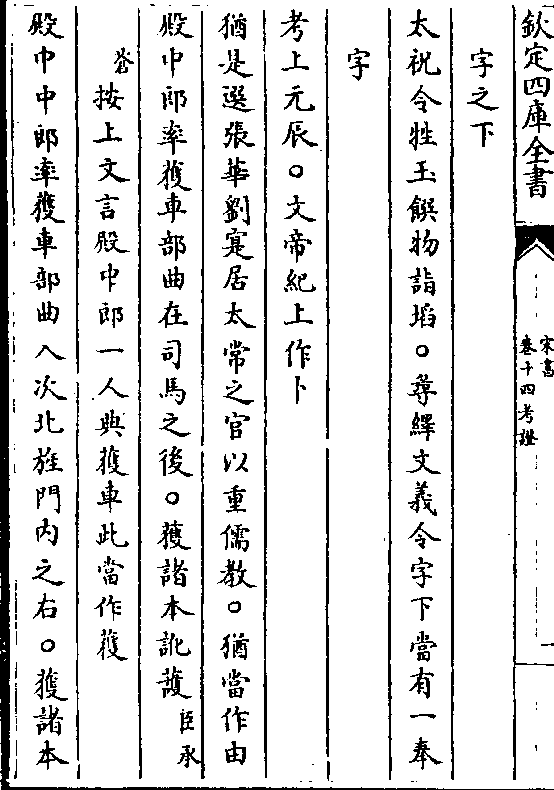 欽定四庫全書
宋書
卷十四考證
一
字之下
太祝令牲玉饌物詣埳○尋繹文義令字下當有一奉
字
考上元辰○文帝紀上作卜
猶是選張華劉寔居太常之官以重儒教○猶當作由
殿中郎率獲車部曲在司馬之後○獲諸本訛護臣承
蒼按上文言殿中郎一人典獲車此當作獲
殿中中郎率獲車部曲入次北旌門内之右○獲諸本